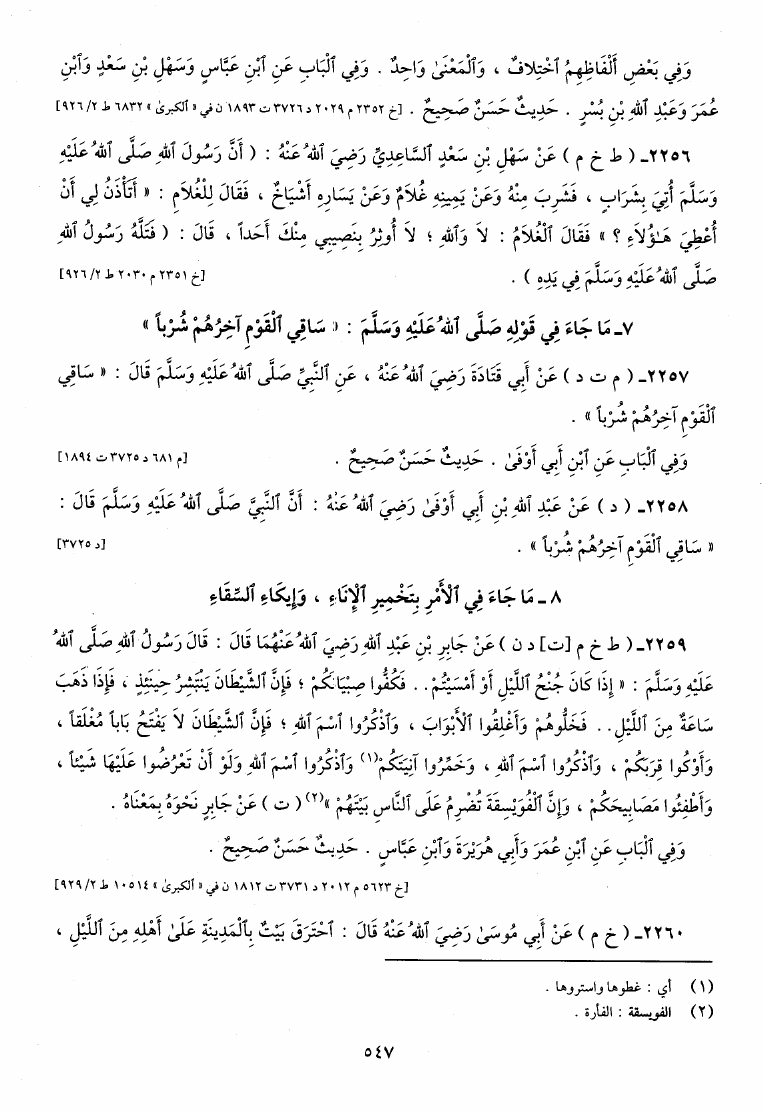 وَفِي بَعْضِ أَلْفَاظِهِمُ ٱخْتِلَافٌ ، وَٱلْمَعْنَىٰ وَاحِدٌ . وَفِي ٱلْبَابِ عَنِ ٱبْنِ عَبَّاسٍ وَسَهْلِ بْنِ سَعْدٍ وَٱبْنِ
عُمَرَ وَعَبْدِ ٱللهِ بْنِ بُسْرٍ . حَدِيثٌ حَسَنٌ صَحِيحٌ . [خ ٢٣٥٢ م ٢٠٢٩ د ٣٧٢٦ ت ١٨٩٣ ن في « ٱلكبرىٰ » ٦٨٣٢ ط ٢/ ٩٢٦]
٢٢٥٦ـ ( ط خ م ) عَنْ سَهْلِ بْنِ سَعْدٍ ٱلسَّاعِدِيِّ رَضِيَ ٱللهُ عَنْهُ : ( أَنَّ رَسُولَ ٱللهِ صَلَّى ٱللهُ عَلَيْهِ
وَسَلَّمَ أُتِيَ بِشَرَابٍ ، فَشَرِبَ مِنْهُ وَعَنْ يَمِينِهِ غُلَامٌ وَعَنْ يَسَارِهِ أَشْيَاخٌ ، فَقَالَ لِلْغُلَامِ : « أَتَأْذَنُ لِي أَنْ
أُعْطِيَ هَـٰؤُلَاءِ ؟ » فَقَالَ ٱلْغُلَامُ : لَا وَٱللهِ ؛ لَا أُوثِرُ بِنَصِيبِي مِنْكَ أَحَداً ، قَالَ : ( فَتَلَّهُ رَسُولُ ٱللهِ
صَلَّى ٱللهُ عَلَيْهِ وَسَلَّمَ فِي يَدِهِ ) . [خ ٢٣٥١ م ٢٠٣٠ ط ٢/ ٩٢٦]
٧ـ مَا جَاءَ فِي قَوْلِهِ صَلَّى ٱللهُ عَلَيْهِ وَسَلَّمَ : « سَاقِي ٱلْقَوْمِ آخِرُهُمْ شُرْباً »
٢٢٥٧ـ ( م ت د ) عَنْ أَبِي قَتَادَةَ رَضِيَ ٱللهُ عَنْهُ ، عَنِ ٱلنَّبِيِّ صَلَّى ٱللهُ عَلَيْهِ وَسَلَّمَ قَالَ : « سَاقِي
ٱلْقَوْمِ آخِرُهُمْ شُرْباً » .
وَفِي ٱلْبَابِ عَنِ ٱبْنِ أَبِي أَوْفَىٰ . حَدِيثٌ حَسَنٌ صَحِيحٌ . [م ٦٨١ د ٣٧٢٥ ت ١٨٩٤]
٢٢٥٨ـ ( د ) عَنْ عَبْدِ ٱللهِ بْنِ أَبِي أَوْفَىٰ رَضِيَ ٱللهُ عَنْهُ : أَنَّ ٱلنَّبِيَّ صَلَّى ٱللهُ عَلَيْهِ وَسَلَّمَ قَالَ :
« سَاقِي ٱلْقَوْمِ آخِرُهُمْ شُرْباً » . [د ٣٧٢٥]
٨ ـ مَا جَاءَ فِي ٱلْأَمْرِ بِتَخْمِيرِ ٱلْإِنَاءِ ، وَإِيكَاءِ ٱلسِّقَاءِ
٢٢٥٩ـ ( ط خ م [ت] د ن ) عَنْ جَابِرِ بْنِ عَبْدِ ٱللهِ رَضِيَ ٱللهُ عَنْهُمَا قَالَ : قَالَ رَسُولُ ٱللهِ صَلَّى ٱللهُ
عَلَيْهِ وَسَلَّمَ : « إِذَا كَانَ جُنْحُ ٱللَّيْلِ أَوْ أَمْسَيْتُمْ . . فَكُفُّوا صِبْيَانَكُمْ ؛ فَإِنَّ ٱلشَّيْطَانَ يَنْتَشِرُ حِينَئِذٍ ، فَإِذَا ذَهَبَ
سَاعَةٌ مِنَ ٱللَّيْلِ . . فَخَلُّوهُمْ وَأَغْلِقُوا ٱلْأَبْوَابَ ، وَٱذْكُرُوا ٱسْمَ ٱللهِ ؛ فَإِنَّ ٱلشَّيْطَانَ لَا يَفْتَحُ بَاباً مُغْلَقاً ،
وَأَوْكُوا قِرَبَكُمْ ، وَٱذْكُرُوا ٱسْمَ ٱللهِ ، وَخَمِّرُوا آنِيَتَكُمْ(١) وَٱذْكُرُوا ٱسْمَ ٱللهِ وَلَوْ أَنْ تَعْرُضُوا عَلَيْهَا شَيْئاً ،
وَأَطْفِئُوا مَصَابِيحَكُمْ ، وَإِنَّ ٱلْفُوَيْسِقَةَ تُضْرِمُ عَلَى ٱلنَّاسِ بَيْتَهُمْ »(٢) ( ت ) عَنْ جَابِرٍ نَحْوَهُ بِمَعْنَاهُ .
وَفِي ٱلْبَابِ عَنِ ٱبْنِ عُمَرَ وَأَبِي هُرَيْرَةَ وَٱبْنِ عَبَّاسٍ . حَدِيثٌ حَسَنٌ صَحِيحٌ .
[خ ٥٦٢٣ م ٢٠١٢ د ٣٧٣١ ت ١٨١٢ ن في « ٱلكبرىٰ » ١٠٥١٤ ط ٢/ ٩٢٩]
٢٢٦٠ـ ( خ م ) عَنْ أَبِي مُوسَىٰ رَضِيَ ٱللهُ عَنْهُ قَالَ : ٱحْتَرَقَ بَيْتٌ بِٱلْمَدِينَةِ عَلَىٰ أَهْلِهِ مِنَ ٱللَّيْلِ ،
(١) أي : غطوها واستروها .
(٢) الفويسقة : الفأرة .
٥٤٧